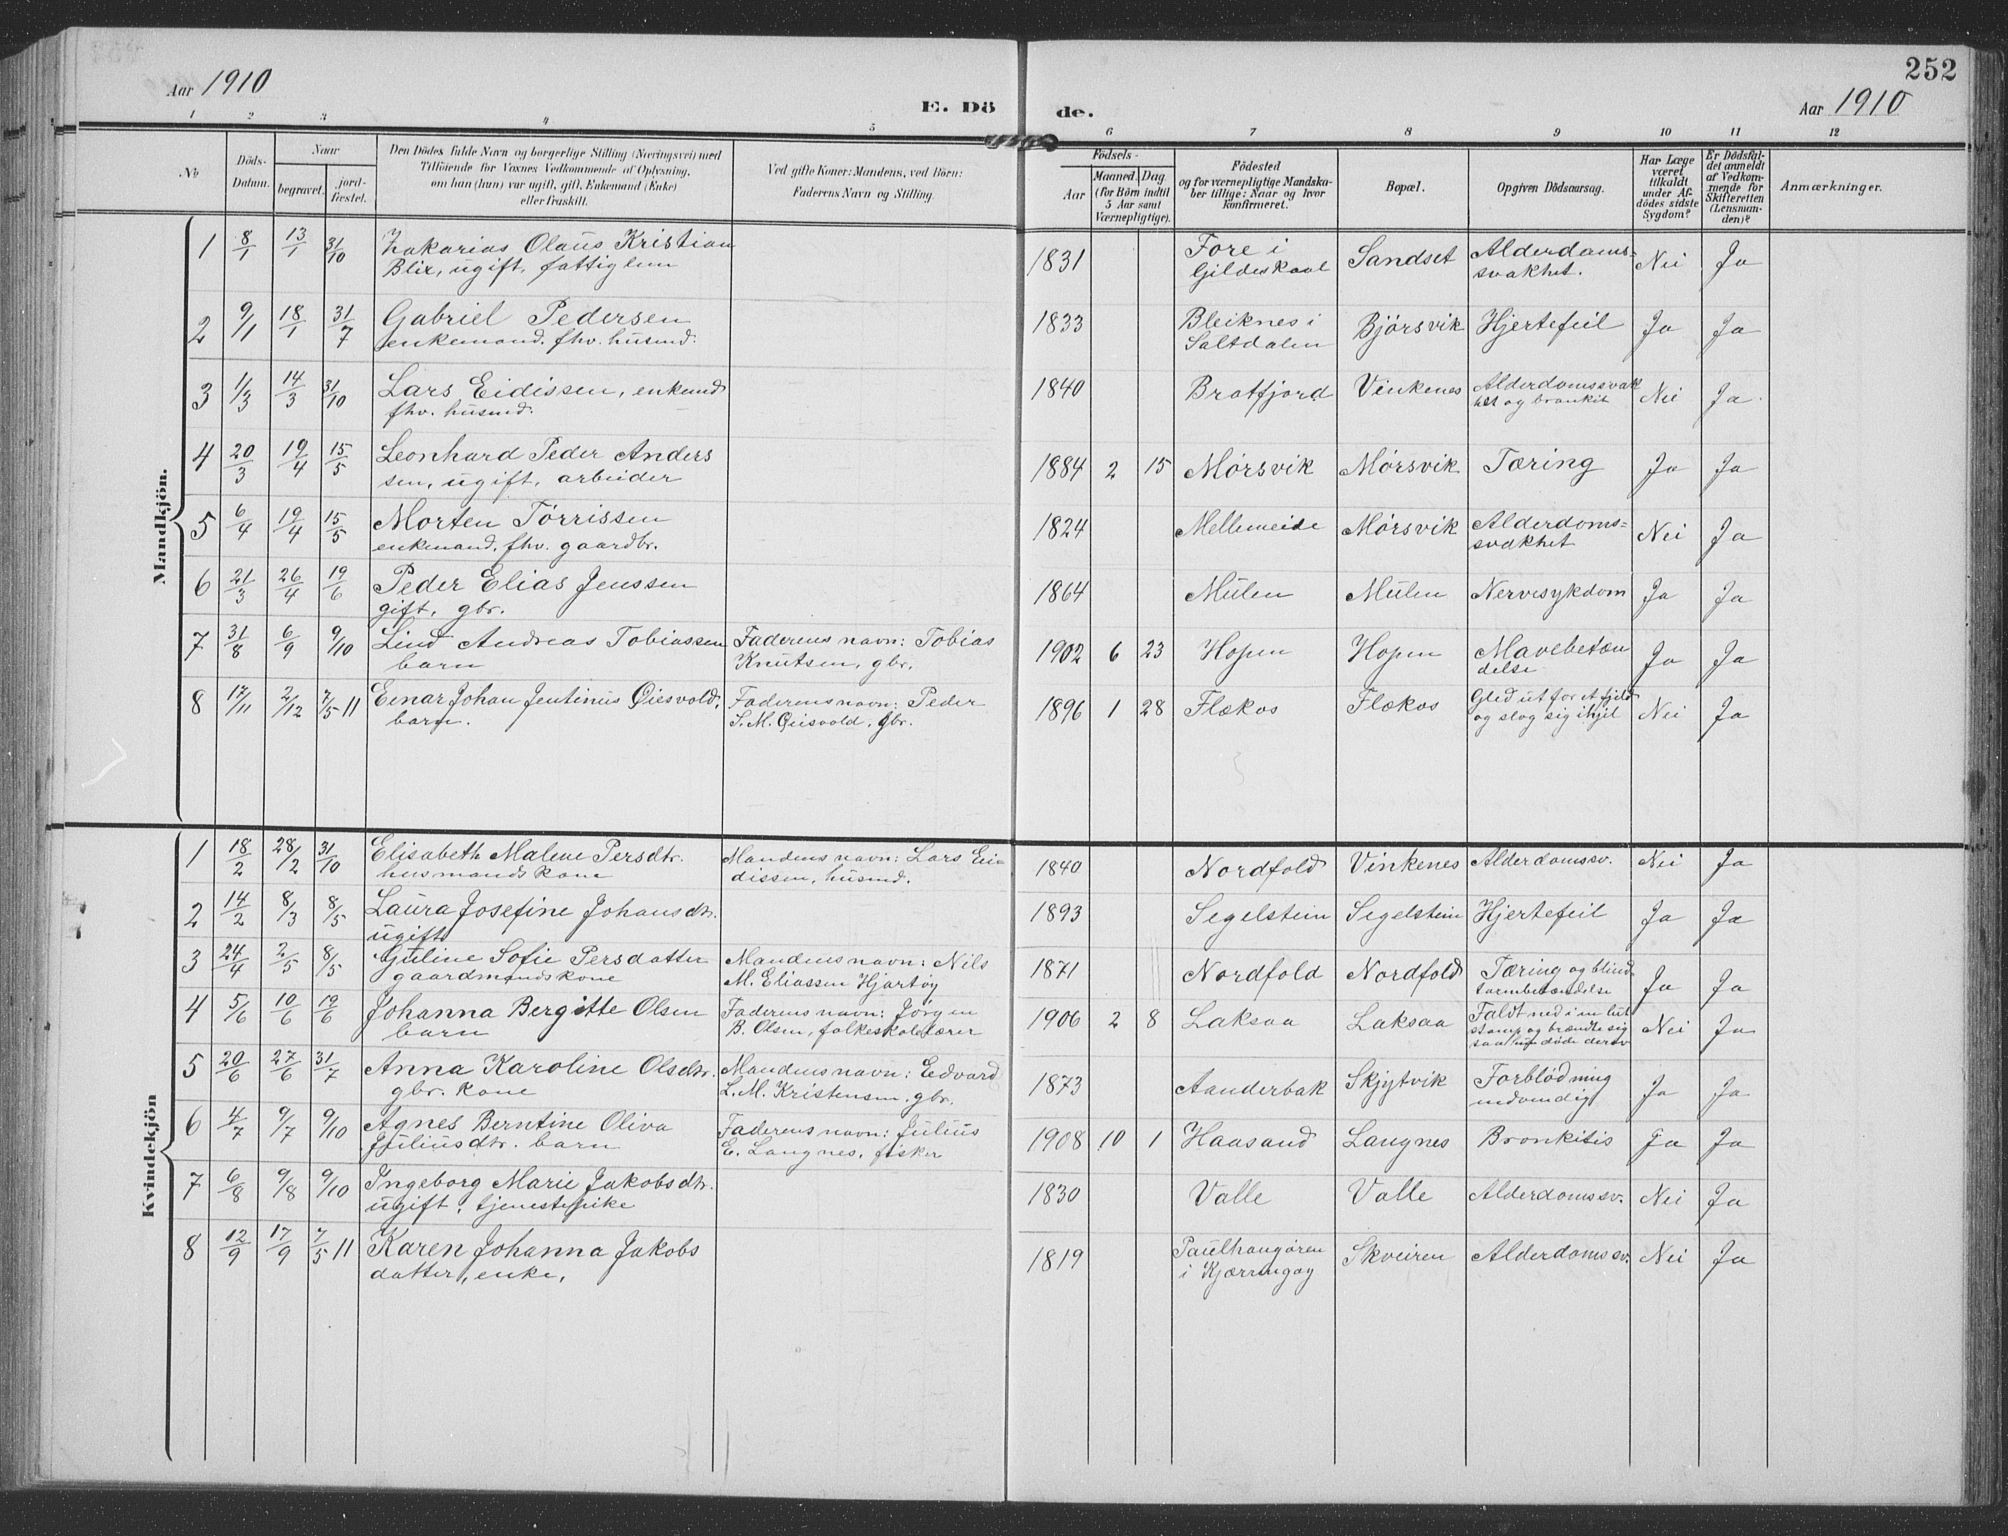 252
Aar 1910
E. Dö de.
Aar 1910
1 2 3 4 5 6 7 8 9 10 11 12
No
Döds-Datum.
Naar
begravet.
jord-fæstet.
Den Dödes fulde Navn og borgerlige Stilling (Næringsvei) med
Tilföiende for Voxnes Vedkommende af Oplysning,
om han (hun) var ugift, gift, Enkemand (Enke)
eller fraskilt.
Ved gifte Koner: Mandens, ved Börn:
Faderens Navn og Stilling.
Födsels-
Aar
Maaned. Dag
(for Börn indtil
5 Aar samt
Værnepligtige).
Födested
og for værnepligtige Mandska-
ber tillige: Naar og hvor
konfirmeret.
Bopæl.
Opgiven Dödsaarsag.
Har Læge
været
tilkaldt
under Af-
dödes sidste
Sygdom?
Er Dödsfal-
det anmeldt
af Vedkom-
mende for
Skifteretten
(Lensman-
den)?
Anmærkninger.
Mandkjön.
1 8/1 13/1 31/10 Zakarias Olaus Kristian 1831 Fore i Sandset Alderdoms= Nei Ja
Blix, ugift, fattiglem Gildeskaal svakhet.
2 9/1 18/1 31/7 Gabriel Pedersen 1833 Bleiknes i Bjørsvik Hjertefeil Ja Ja
enkemand, fhv. husmd. Saltdalen
3 1/3 14/3 31/10 Lars Eidissen, enkemd 1840 Bratfjord Vinkenes Alderdomssvak Nei Ja
fhv. husmd. het og bronkit
4 20/3 19/4 15/5 Leonhard Peder Anders 1884 2 15 Mørsvik Mørsvik Tæring Ja Ja
sen, ugift, arbeider
5 6/4 19/4 15/5 Morten Tørrissen 1824 Mellemeide Mørsvik Alderdoms= Nei Ja
enkemand, fhv. gaardbr. svakhet
6 21/3 26/4 19/6 Peder Elias Jenssen 1864 Mulen Mulen Nervesykdom Ja Ja
gift, gbr.
7 31/8 6/9 9/10 Lind Andreas Tobiassen Faderens navn: Tobias 1902 6 23 Hopen Hopen Mavebetæn Ja Ja
barn Knutsen, gbr. delse
8 17/11 2/12 7/5 11 Einar Johan Jentinus Øiesvold, Faderens navn: Peder 1896 1 28 Flækos Flækos Gled ut for et fjeld Nei Ja
barn. S. M. Øiesvold, gbr. og slog sig ihjel
Kvindekjön
1 18/2 28/2 31/10 Elisabeth Malene Persdtr. Mandens navn: Lars Ei= 1840 Nordfold Vinkenes Alderdomssv. Nei Ja
husmandskone dissen, husmd.
2 14/2 8/3 8/5 Laura Josefine Johansdtr. 1893 Segelstein Segelstein Hjertefeil Ja Ja
ugift
3 24/4 2/5 8/5 Guline Sofie Persdatter Mandens navn: Nils 1871 Nordfold Nordfold Tæring og blind Ja Ja
gaardmandskone M. Eliassen Hjartøy tarmbetændelse
4 5/6 10/6 19/6 Johanna Bergitte Olsen Faderens navn: Jørgen 1906 2 8 Laksaa Laksaa Faldt ned i en lut Nei Ja
barn B. Olsen, folkeskolelærer stamp og brændte sig
saa hun døde derav
5 20/6 27/6 31/7 Anna Karoline Olsdtr. Mandens navn: Edvard 1873 Aanderbak Skjytvik Forblødning Ja Ja
gbr. kone L. M. Kristensen, gbr. indvendig
6 4/7 9/7 9/10 Agnes Berntine Oliva Faderens navn: Julius 1908 10 1 Haasand Langnes Bronkitis Ja Ja
Juliusdtr. barn E. Langnes, fisker
7 6/8 9/8 9/10 Ingeborg Marie Jakobsdtr. 1830 Valle Valle Alderdomssv. Nei Ja
ugift, tjenestepike
8 12/9 17/9 7/5 11 Karen Johanna Jakobs 1819 Paulhangøren Skveiren Alderdomssv. Nei Ja
datter, enke, i Kjærringøy